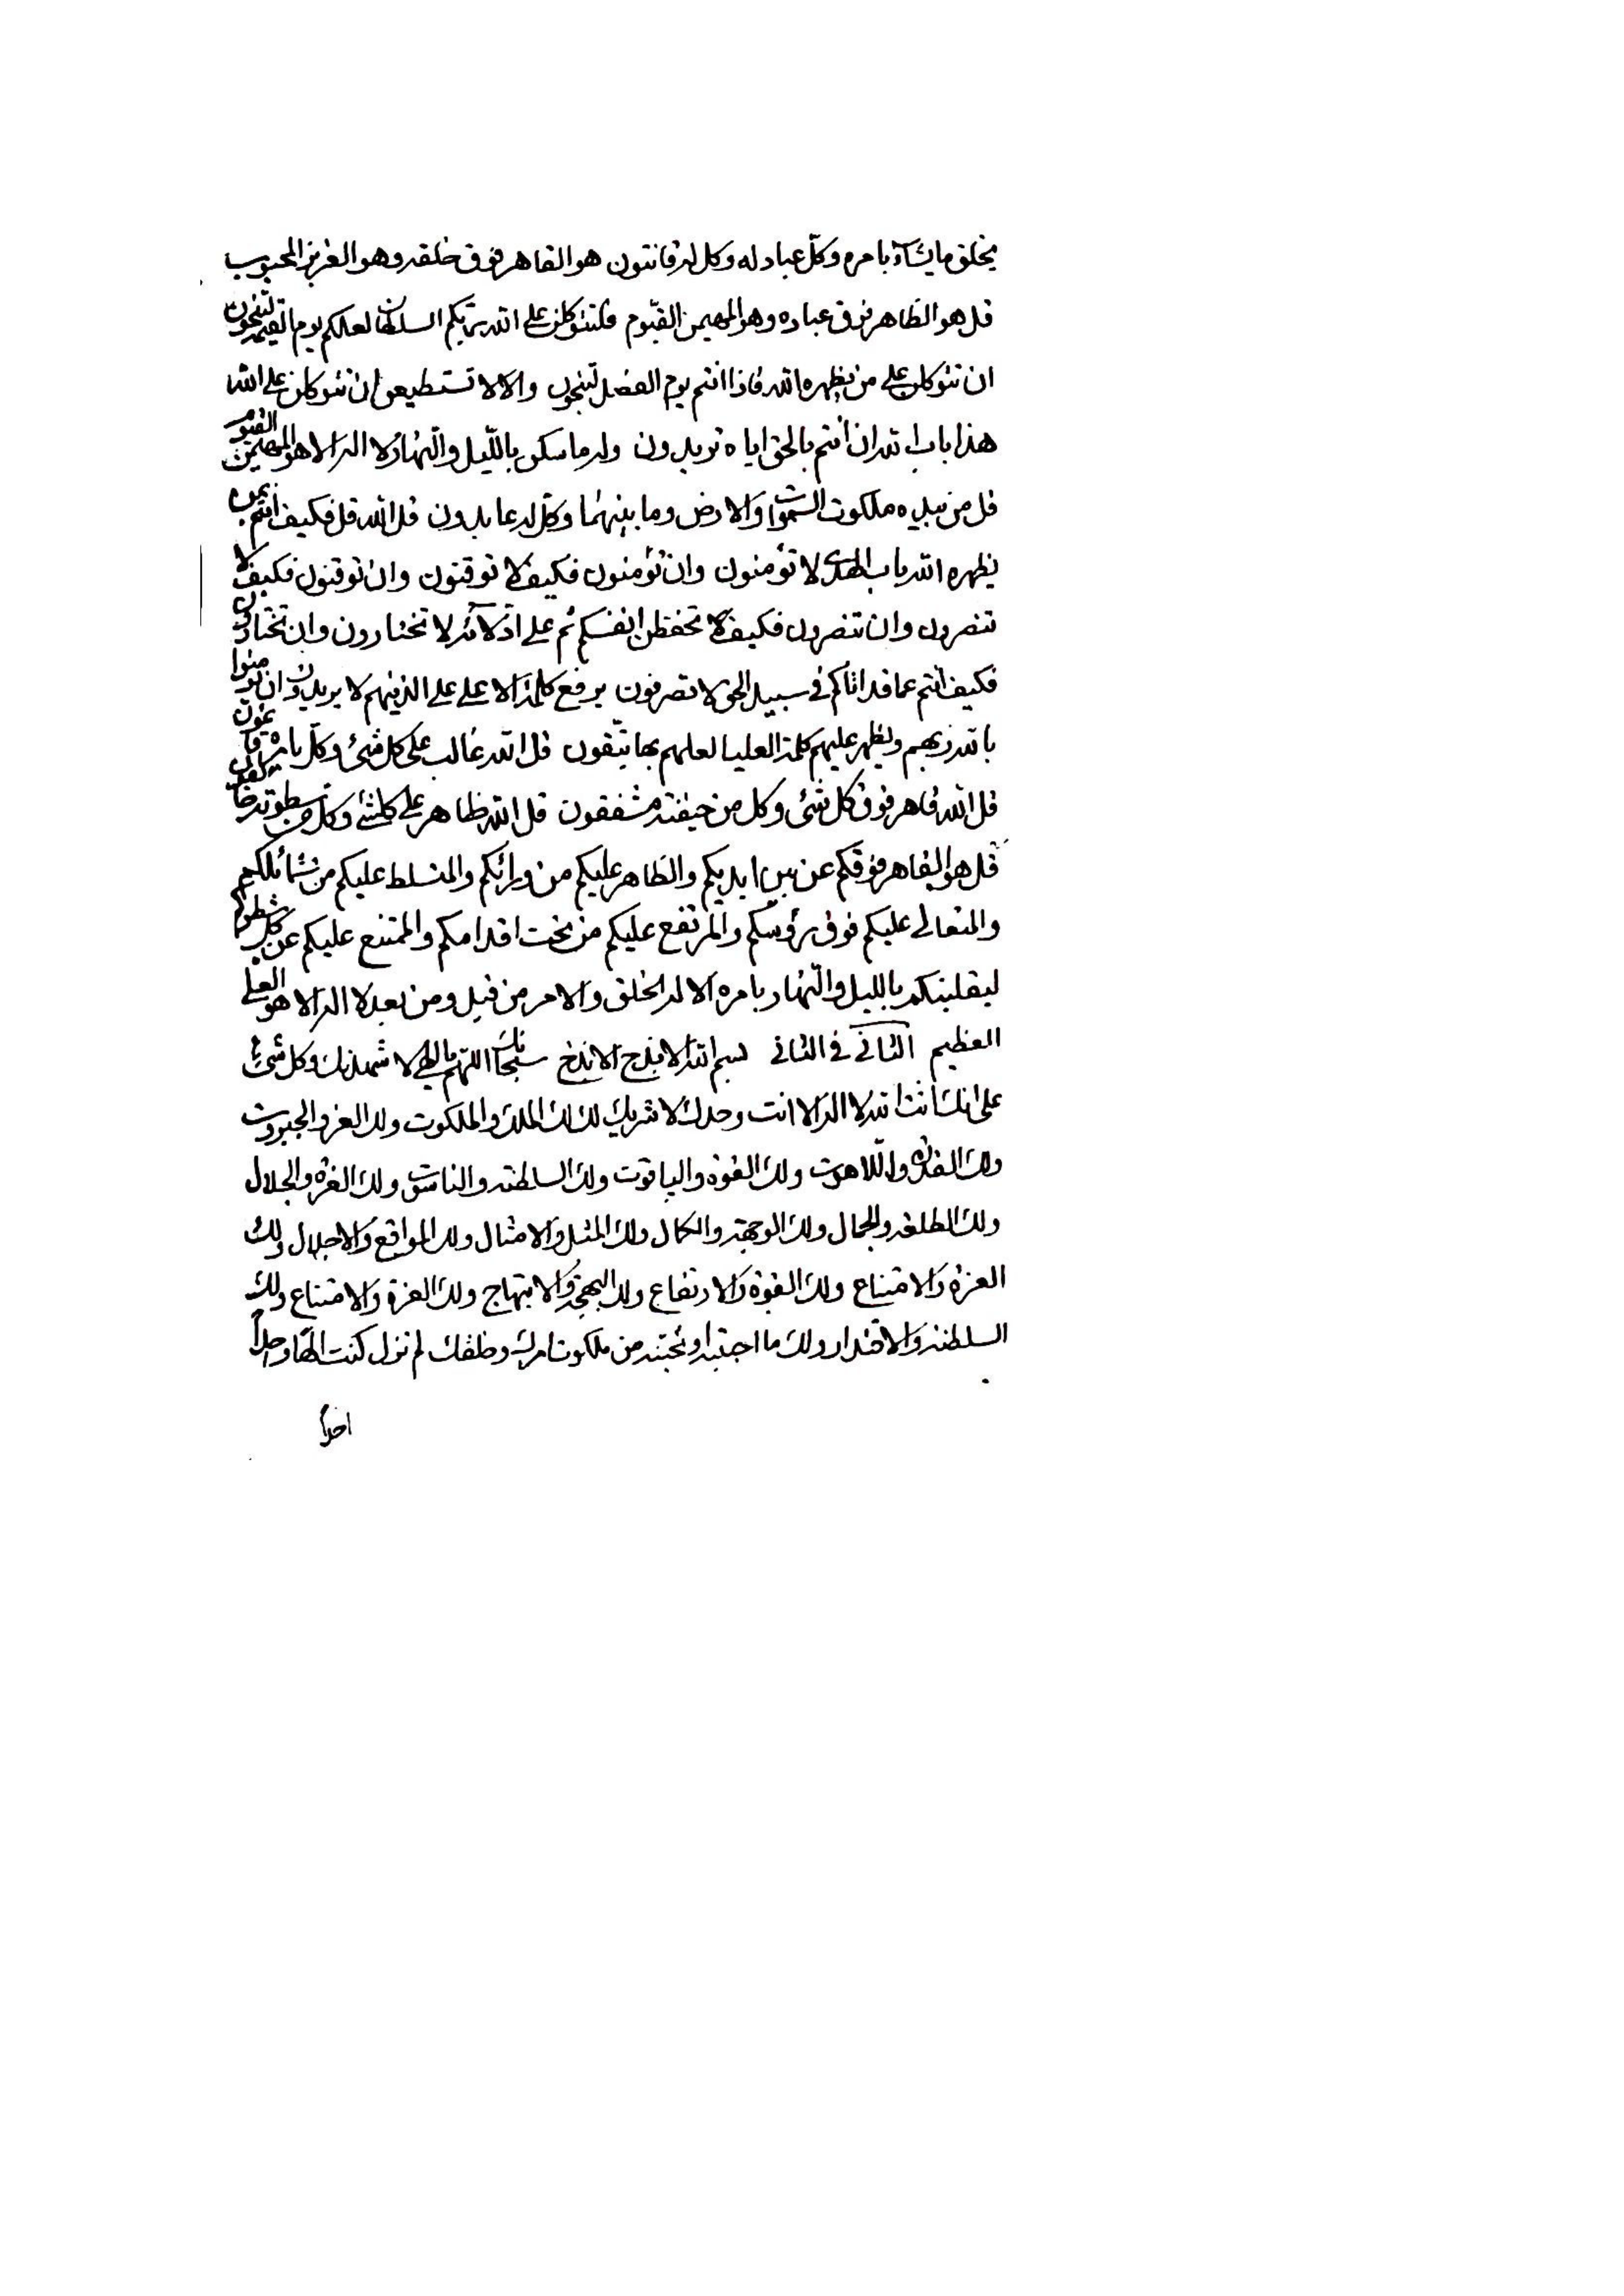 يخلق ما يشآء بامره وكل عباد له وكل له قانتون هو القاهر فوق خلقه وهو العزيز المحبوب
قل هو الظاهر فوق عباده وهو المهيمن القيوم فلتتوكلن على الله ربكم السلطان لعلكم يوم القيمة لتنجون
ان تتوكلن على من يظهره الله فاذا انتم يوم الفصل لتنجون والا لا تستطيعن ان تتوكلن على الله
هذا باب الله ان انتم بالحق اياه تريدون وله ما سكن بالليل والنهار لا اله الا هو المهيمن القيوم
قل من بيده ملكوت السموات والارض وما بينهما وكل له عابدون قل الله قل فكيف انتم بمن
يظهره الله باب الهدى لا تؤمنون وان تؤمنون فكيف لا توقنون وان توقنون فكيف لا
تنصرون وان تنصرون فكيف لا تحفظن انفسكم ثم على ادلائه لا تختارون وان تختارون
فكيف انتم عما قد اتاكم في سبيل الحق لا تصرفون يرفع كلمة الاعلى على الذينهم لا يريدون ان يؤمنوا
بالله ربهم ويظهر عليهم كلمة العليا لعلهم بها يتقون قل الله غالب على كل شئ وكل بامره قائمون
قل الله قاهر فوق كل شئ وكل من خيفته مشفقون قل الله ظاهر على كلشئ وكل من سطوته خائفون
قل هو القاهر فوقكم عن بين ايديكم والظاهر عليكم من ورائكم والمتسلط عليكم من شمائلكم
والمتعالي عليكم فوق رؤسكم والمرتفع عليكم من تحت اقدامكم والممتنع عليكم عن كل شطركم
ليقلبنكم بالليل والنهار بامره الا له الخلق والامر من قبل ومن بعد لا اله الا هو العلي
العظيم الثاني في الثاني بسم الله الابذخ الابذخ سبحانك اللهم يا الهي لاشهدنك وكل شئ
على انك انت الله لا اله الا انت وحدك لا شريك لك لك الملك والملكوت ولك العز والجبروت
ولك القدرة واللاهوت ولك القوة والياقوت ولك السلطنة والناسوت ولك العزة والجلال
ولك الطلعة والجمال ولك الوجهة والكمال ولك المثل والامثال ولك المواقع والاجلال ولك
العزة والامتناع ولك القوة والارتفاع ولك البهجة والابتهاج ولك العزة والامتناع ولك
السلطنة والاقتدار ولك ما احببته او تحبنه من ملكوت امرك وخلقك لم تزل كنت الها واحدا
احدا